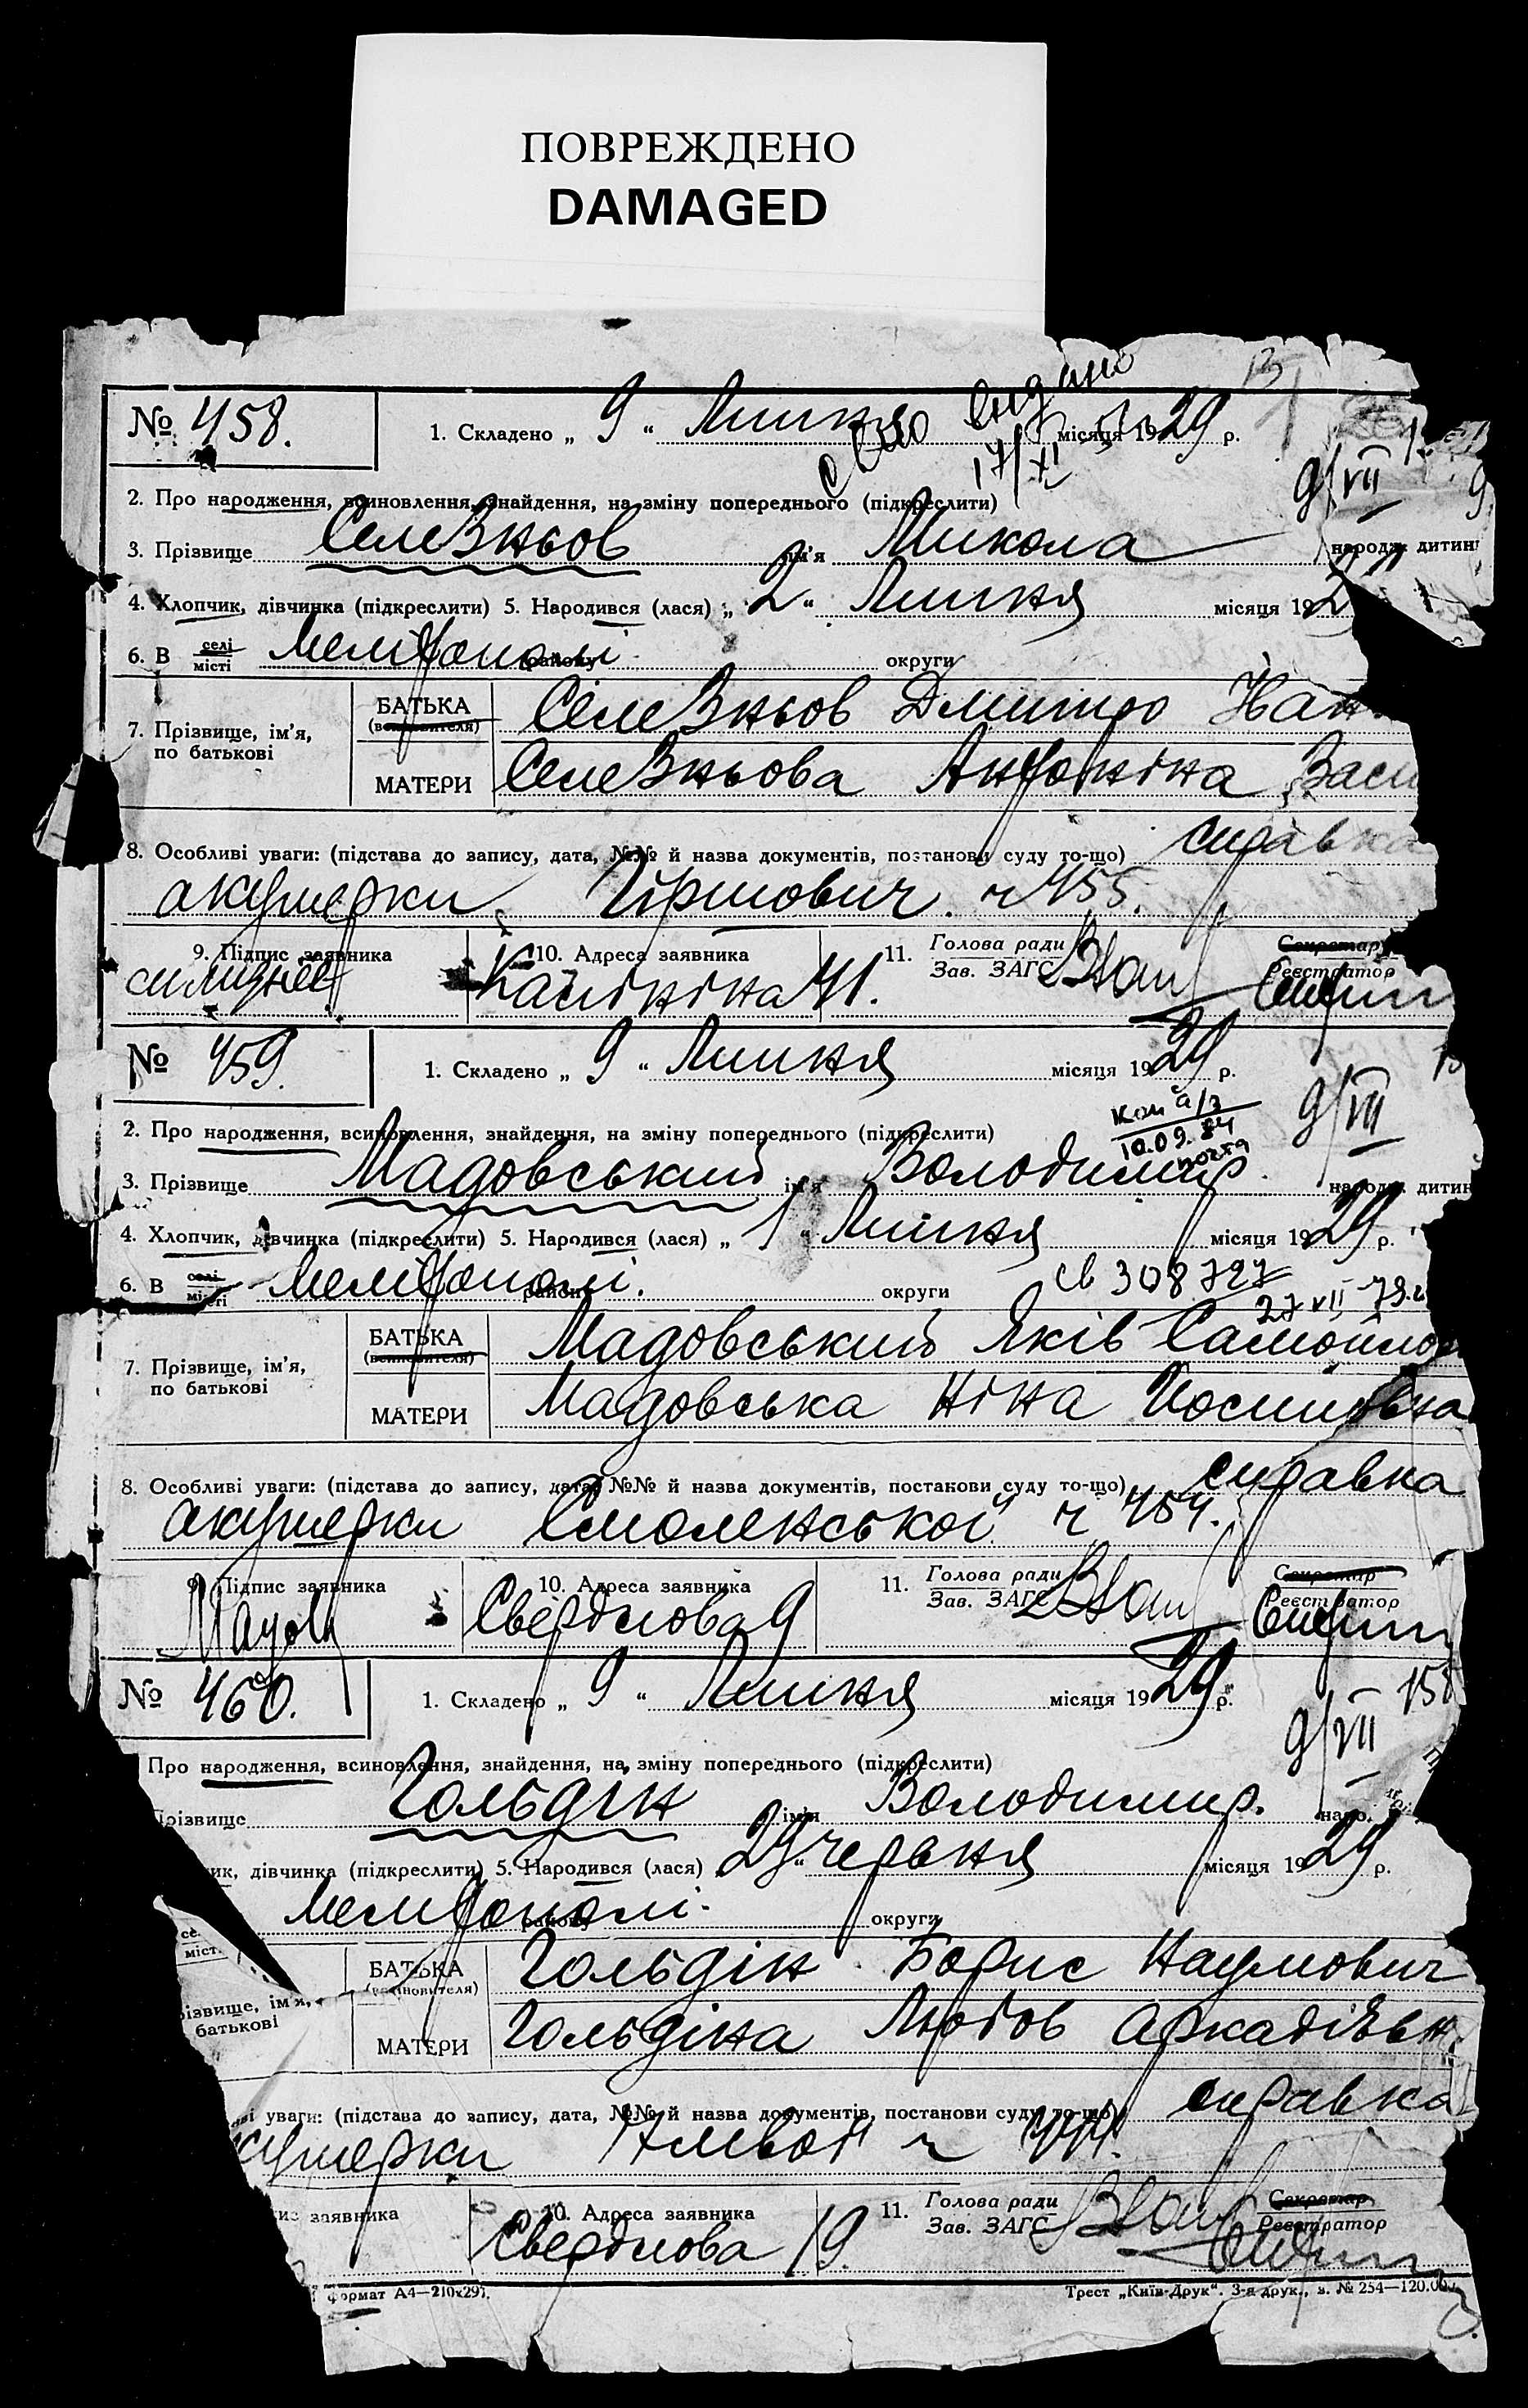 ПОВРЕЖДЕНО
DAMAGED
№ 458.
1. Складено „ 9 “ Липня місяця 1929 р.
видано
17/XI
9/VII
2. Про народження, всиновлення, знайдення, на зміну попереднього (підкреслити)
3. Прізвище Селезньов ім'я Микола народж. дитин
4. Хлопчик, дівчинка (підкреслити) 5. Народився (лася) „ 2 “ Липня місяця 192
6. В селі місті Мелітополі району округи
7. Прізвище, ім'я, по батькові
БАТЬКА (всиновителя) Селезньов Дмитро
МАТЕРИ Селезньова Антоніна Васи
8. Особливі уваги: (підстава до запису, дата, №№ й назва документів, постанови суду то-що) справка
акушерки Гіршович ч 455.
9. Підпис заявника 10. Адреса заявника 11. Голова ради Зав. ЗАГС Секретар Реєстратор
Калініна 41.
№ 459.
1. Складено „ 9 “ Липня місяця 1929 р.
9/VII
10.09.84
почта
2. Про народження, всиновлення, знайдення, на зміну попереднього (підкреслити)
3. Прізвище Мадовський ім'я Володимир народж. дитин
4. Хлопчик, дівчинка (підкреслити) 5. Народився (лася) „ 1 “ Липня місяця 1929 р.
6. В селі місті Мелітополі району округи
св 308727
27 VII 79 г
7. Прізвище, ім'я, по батькові
БАТЬКА (всиновителя) Мадовський Яків Самойлов
МАТЕРИ Мадовська Ніна Йосипівна
8. Особливі уваги: (підстава до запису, дата, №№ й назва документів, постанови суду то-що) справка
акушерки Смоленської ч 454.
9. Підпис заявника 10. Адреса заявника 11. Голова ради Зав. ЗАГС Секретар Реєстратор
Свердлова 9
№ 460.
1. Складено „ 9 “ Липня місяця 1929 р.
9/VII
Про народження, всиновлення, знайдення, на зміну попереднього (підкреслити)
Прізвище Гольдін ім'я Володимир. наро.
ик, дівчинка (підкреслити) 5. Народився (лася) „ 29 “ червня місяця 1929 р.
се міст. Мелітополі району округи
різвище, ім'я, батькові
БАТЬКА (всиновителя) Гольдін Борис Наумович
МАТЕРИ Гольдіна Любов Аркадіївн
ві уваги: (підстава до запису, дата, №№ й назва документів, постанови суду то-що) справка
кушерки
ис заявника 10. Адреса заявника 11. Голова ради Зав. ЗАГС Секретар Реєстратор
Свердлова 19.
формат А4—210x297.
Трест „Київ-Друк“. 3-я друк., з. № 254—120.00